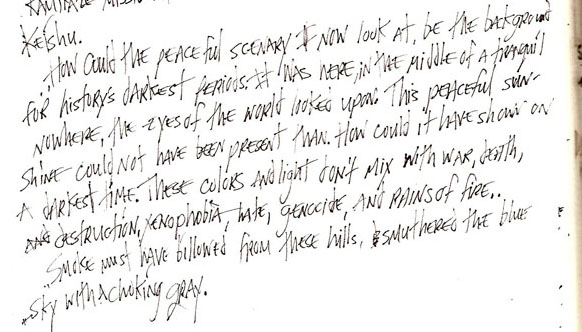 KAMIKAZE MISSIO
Keishu.
"How could the peaceful scenary I now look at, be the background
for history's darkest periods. It was here, in the middle of a tranquil
nowhere, the eyes of the world looked upon. This peaceful sun-
shine could not have been present than. How could it have shown on
a darkest time. These colors and light don't mix with war, death,
and destruction, xenophobia, hate, genocide, and rains of fire..
Smoke must have billowed from these hills, smuthered the blue
sky with a choking gray.